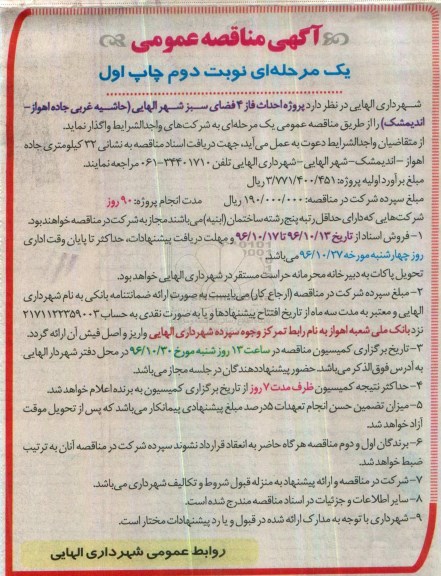 آگهی مناقصه عمومی
یک مرحله‌ای نوبت دوم چاپ اول
شهرداری الهایی در نظر دارد پروژه احداث فاز ۴ فضای سبز شهر الهایی (حاشیه غربی جاده اهواز-
اندیمشک) را از طریق مناقصه عمومی یک مرحله‌ای به شرکت‌های واجدالشرایط واگذار نماید.
از متقاضیان واجدالشرایط دعوت به عمل می‌آید، جهت دریافت اسناد مناقصه به نشانی ۳۲ کیلومتری جاده
اهواز -اندیمشک- شهر الهایی -شهرداری الهایی تلفن ۳۴۴۰۱۷۱۰-۰۶۱ مراجعه نمایند.
مبلغ برآورد اولیه پروژه: ۳/۷۷۱/۴۰۰/۴۵۱ ریال
مبلغ سپرده شرکت در مناقصه: ۱۹۰/۰۰۰/۰۰۰ ریال مدت انجام پروژه: ۹۰ روز
شرکت‌هایی که دارای حداقل رتبه پنج رشته ساختمان (ابنیه) می‌باشند مجاز به شرکت در مناقصه خواهند بود.
۱- فروش اسناد از تاریخ ۹۶/۱۰/۱۳ تا ۹۶/۱۰/۱۷ و مهلت دریافت پیشنهادات، حداکثر تا پایان وقت اداری
روز چهارشنبه مورخه ۹۶/۱۰/۲۷ می‌باشد.
تحویل پاکات به دبیرخانه محرمانه حراست مستقر در شهرداری الهایی خواهد بود.
۲-مبلغ سپرده شرکت در مناقصه (ارجاع کار) می‌بایست به صورت ارائه ضمانتنامه بانکی به نام شهرداری
الهایی و معتبر به مدت سه ماه از تاریخ افتتاح پیشنهادها و یا به صورت نقدی به حساب ۲۱۷۱۱۲۲۳۵۹۰۰۳
نزد بانک ملی شعبه اهواز به نام رابط تمرکز وجوه سپرده شهرداری الهایی واریز و اصل فیش آن ارائه گردد.
۳-تاریخ برگزاری کمیسیون مناقصه در ساعت ۱۳ روز شنبه مورخ ۹۶/۱۰/۳۰ در محل دفتر شهردار الهایی
به آدرس فوق الذکر می‌باشد. حضور پیشنهاددهندگان در جلسه مجاز می‌باشد.
۴- حداکثر نتیجه کمیسیون ظرف مدت ۷ روز از تاریخ برگزاری کمیسیون به برنده اعلام خواهد شد.
۵-میزان تضمین حسن انجام تعهدات ۵درصد مبلغ پیشنهادی پیمانکار می‌باشد که پس از تحویل موقت
آزاد خواهد شد.
۶-برندگان اول و دوم مناقصه هرگاه حاضر به انعقاد قرارداد نشوند سپرده شرکت در مناقصه آنان به ترتیب
ضبط خواهد شد.
۷-شرکت در مناقصه و ارائه پیشنهاد به منزله قبول شروط و تکالیف شهرداری می‌باشد.
۸-سایر اطلاعات و جزئیات در اسناد مناقصه مندرج شده است.
۹-شهرداری با توجه به مدارک ارائه شده در قبول و یا رد پیشنهادات مختار است.
روابط عمومی شهرداری الهایی